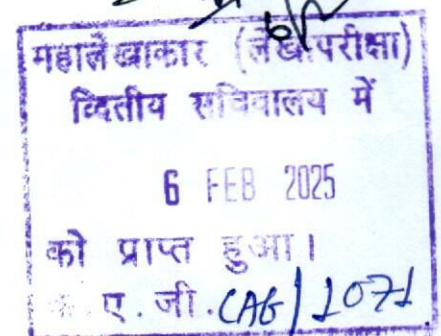 महालेखाकार (लेखापरीक्षा)
व्दितीय सचिवालय में
6 FEB 2025
को प्राप्त हुआ।
ए. जी. CAG/1071